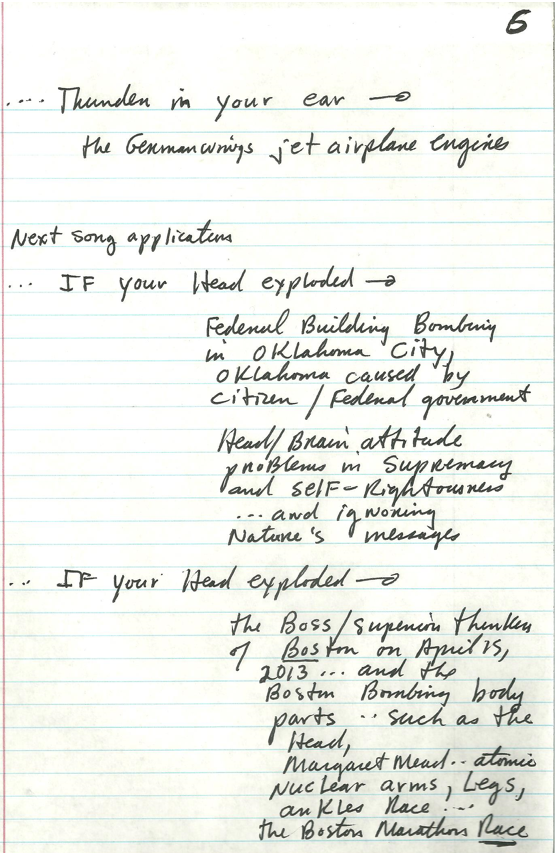 5
.... Thunder in your ear →
the Germanwings jet airplane engines
Next song applications
... IF your Head exploded →
Federal Building Bombing
in OKlahoma City,
OKlahoma caused by
citizen / Federal government
Head/Brain attitude
problems in Supremacy
and self-Rightousness
... and ignoring
Nature's messages
... IF your Head exploded →
the Boss/superior thinker
of Boston on April 15,
2013 ... and the
Boston Bombing body
parts .. such as the
Head,
Margaret Mead.. atomic
Nuclear arms, Legs,
anKles Race ....
the Boston Marathon Race